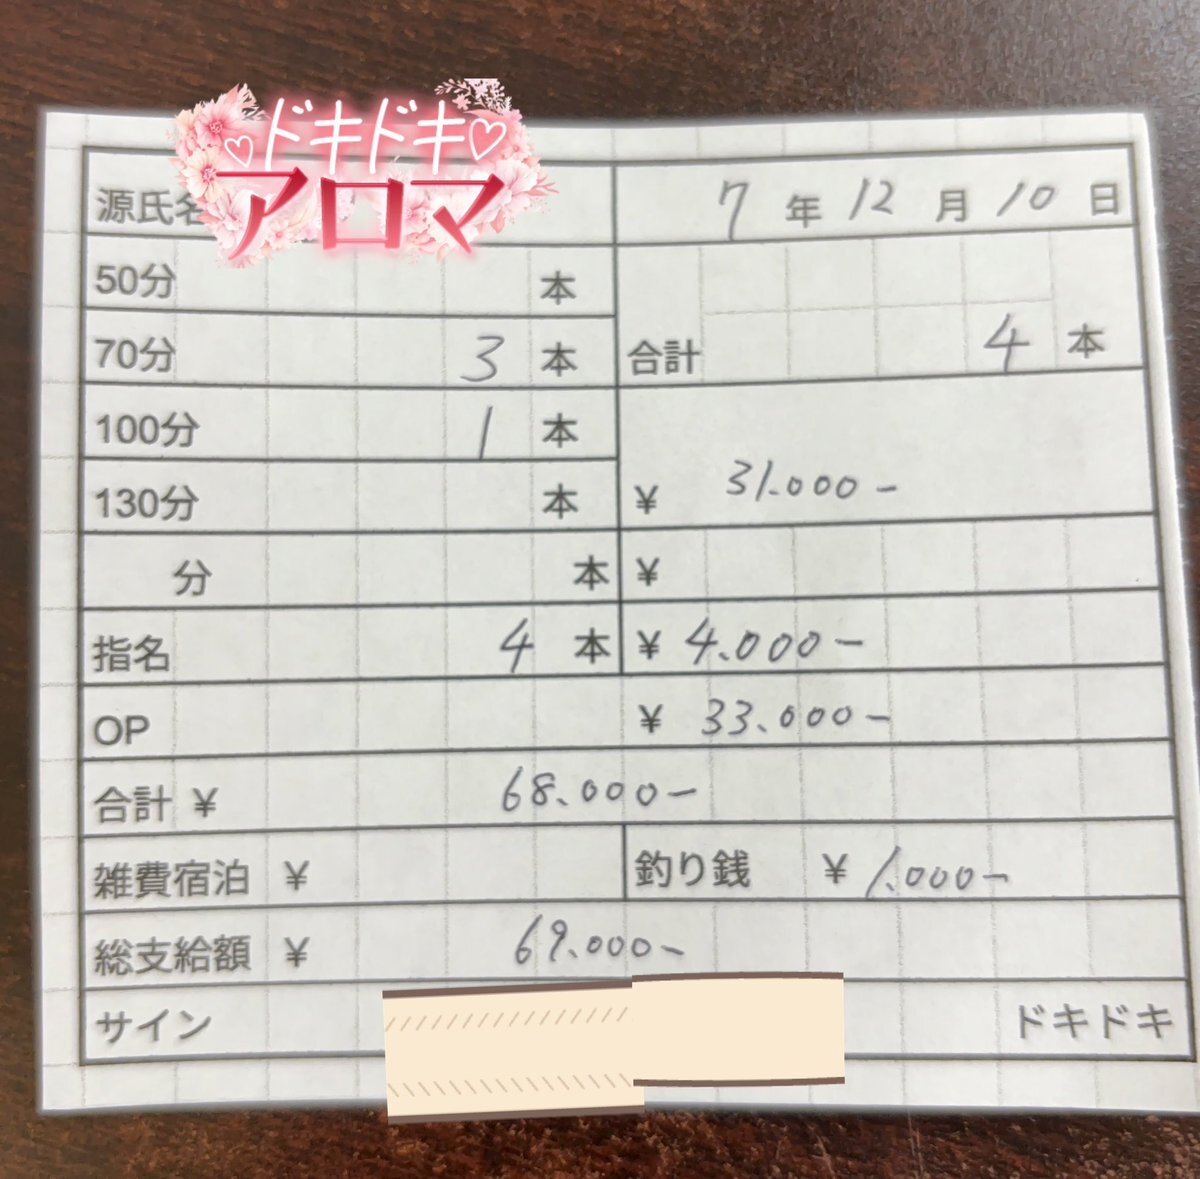 ドキドキ
アロマ
源氏名 7年12月10日
50分 本
70分 3本 合計 4本
100分 1本
¥ 31.000-
130分 本
分 本 ¥
指名 4本 ¥ 4.000-
OP ¥ 33.000-
合計 ¥ 68.000-
雑費宿泊 ¥ 釣り銭 ¥ 1.000-
総支給額 ¥ 69.000-
サイン ドキドキ